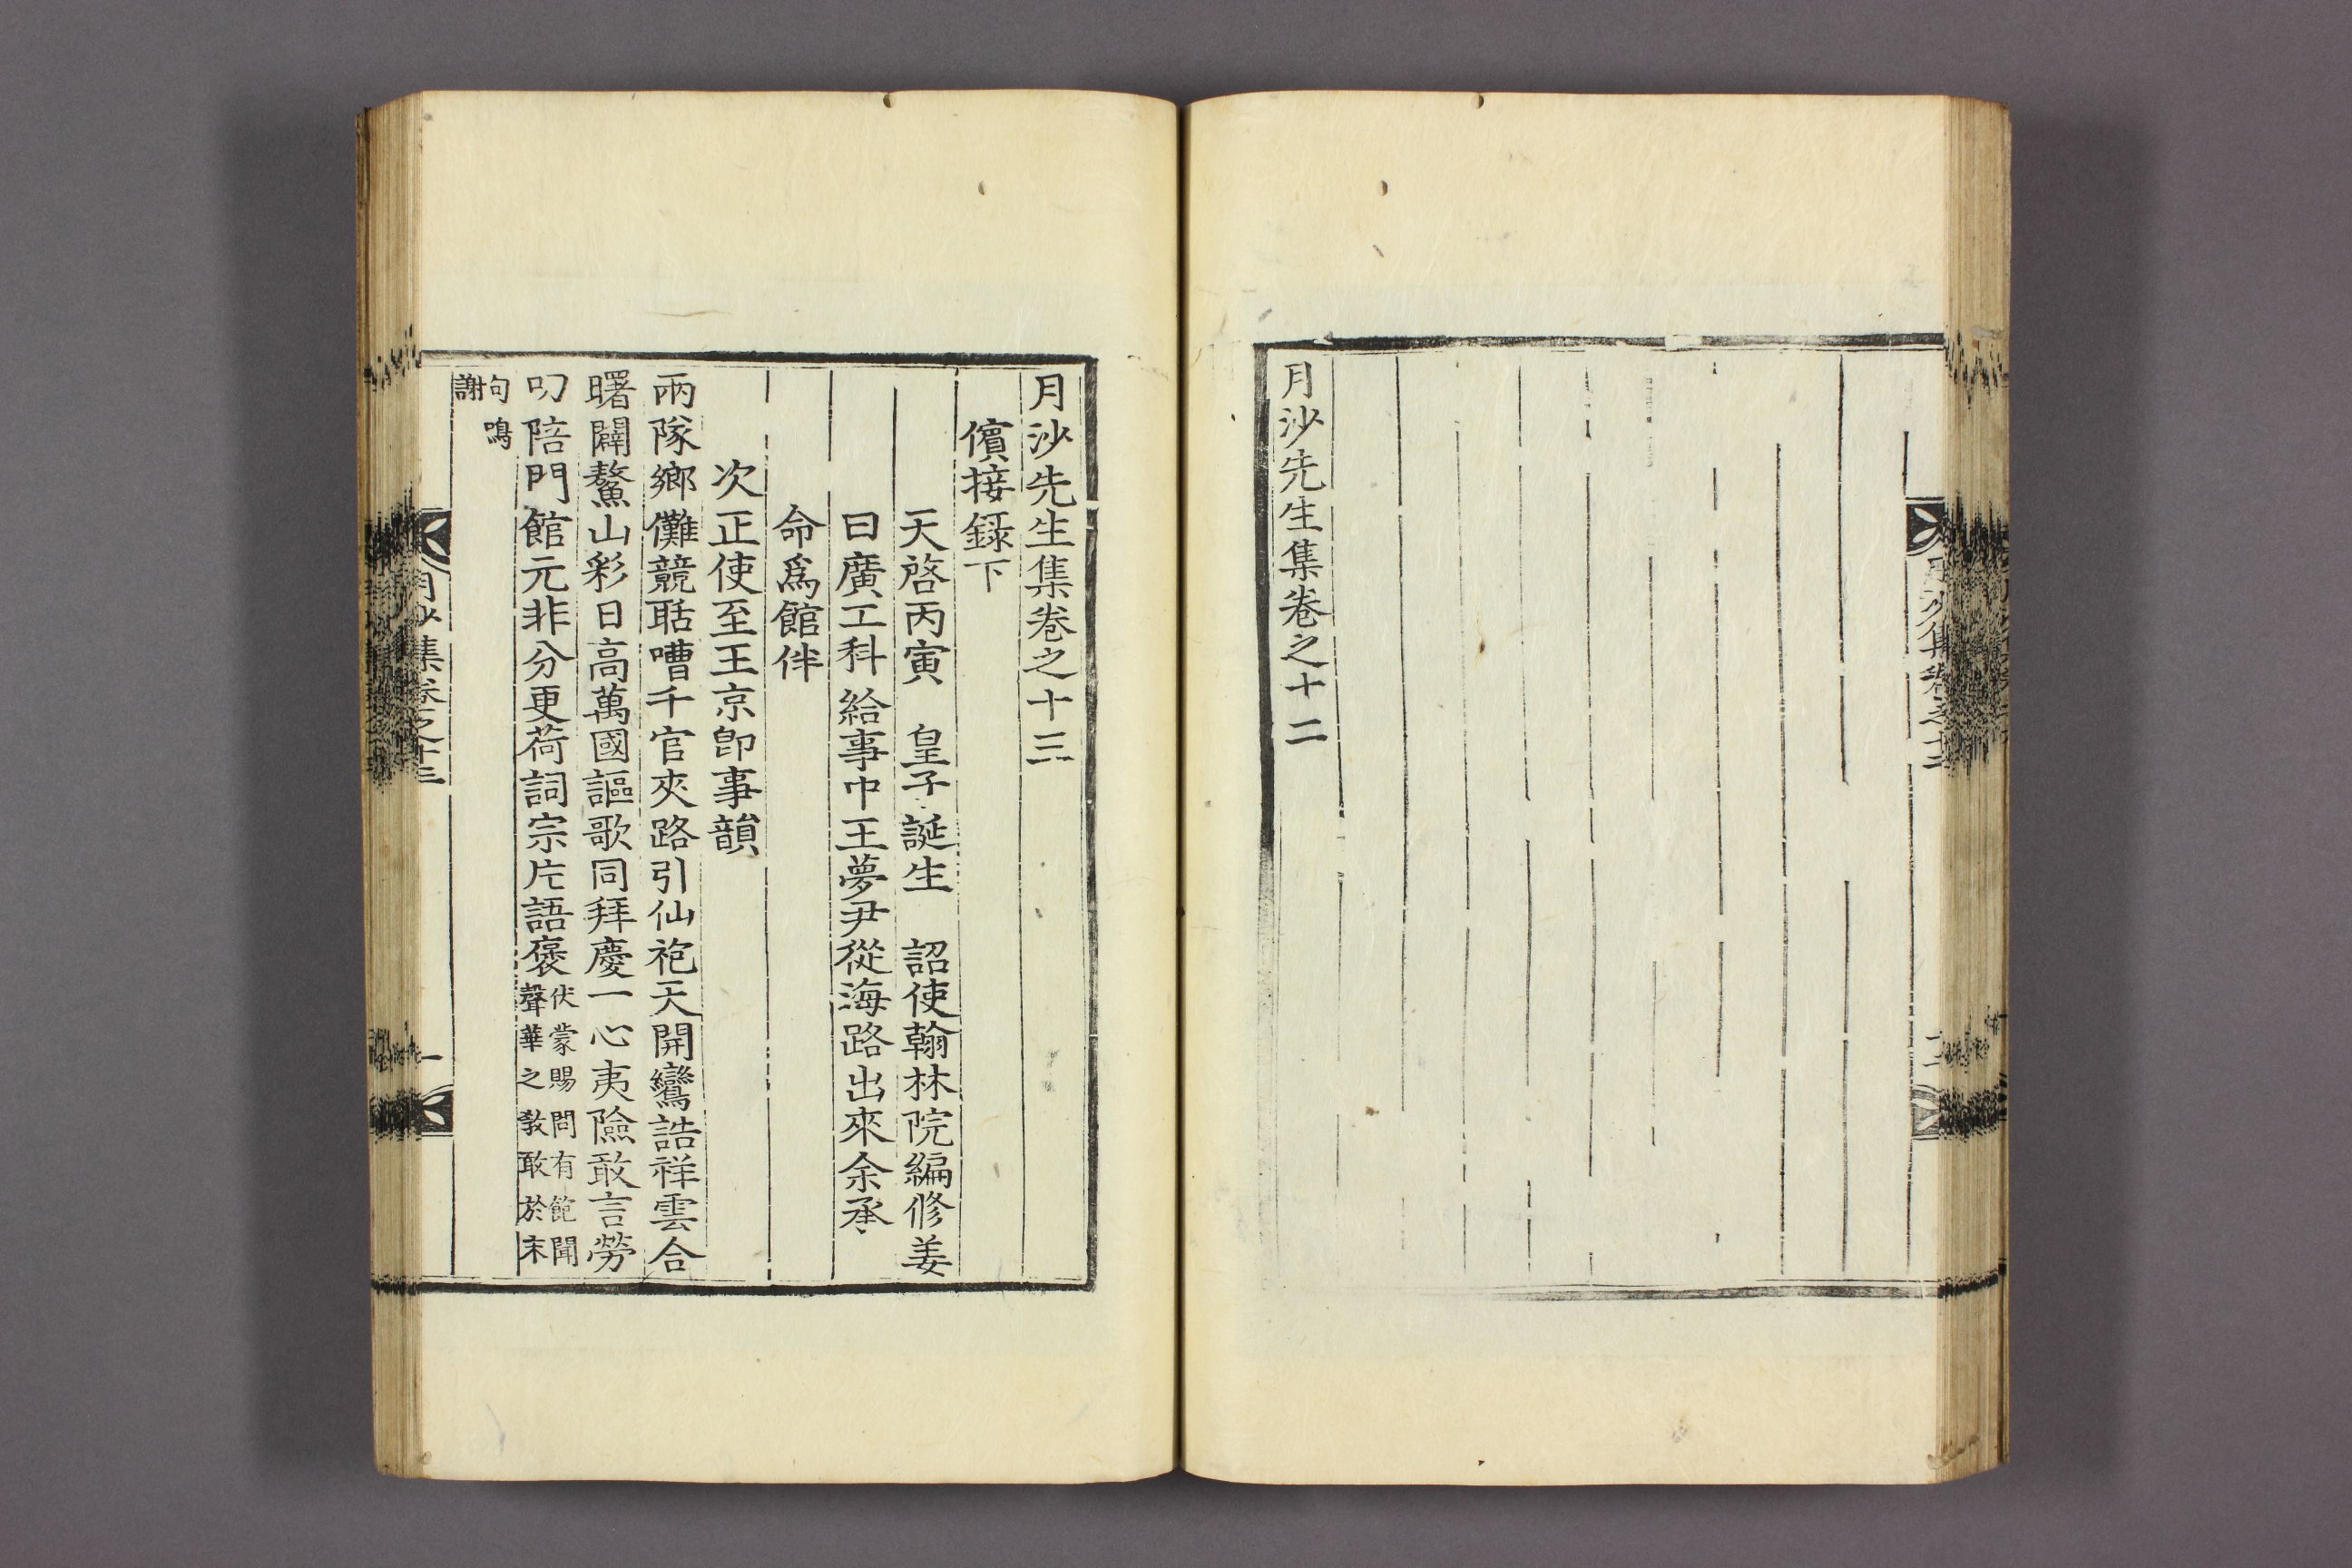 月沙先生集卷之十二
月沙先生集卷之十三
儐接錄下
天啓丙寅 皇子誕生 詔使翰林院編修姜
曰廣工科給事中王夢尹從海路出來余承
命爲館伴
次正使至王京卽事韻
兩隊鄉儺競聒嘈千官夾路引仙袍天開鸞誥祥雲合
曙闢鰲山彩日高萬國謳歌同拜慶一心夷險敢言勞
叨陪門館元非分更荷詞宗片語褒伏蒙賜問有飽聞
聲華之教敢於末
句鳴
謝
月沙集卷之十三
一